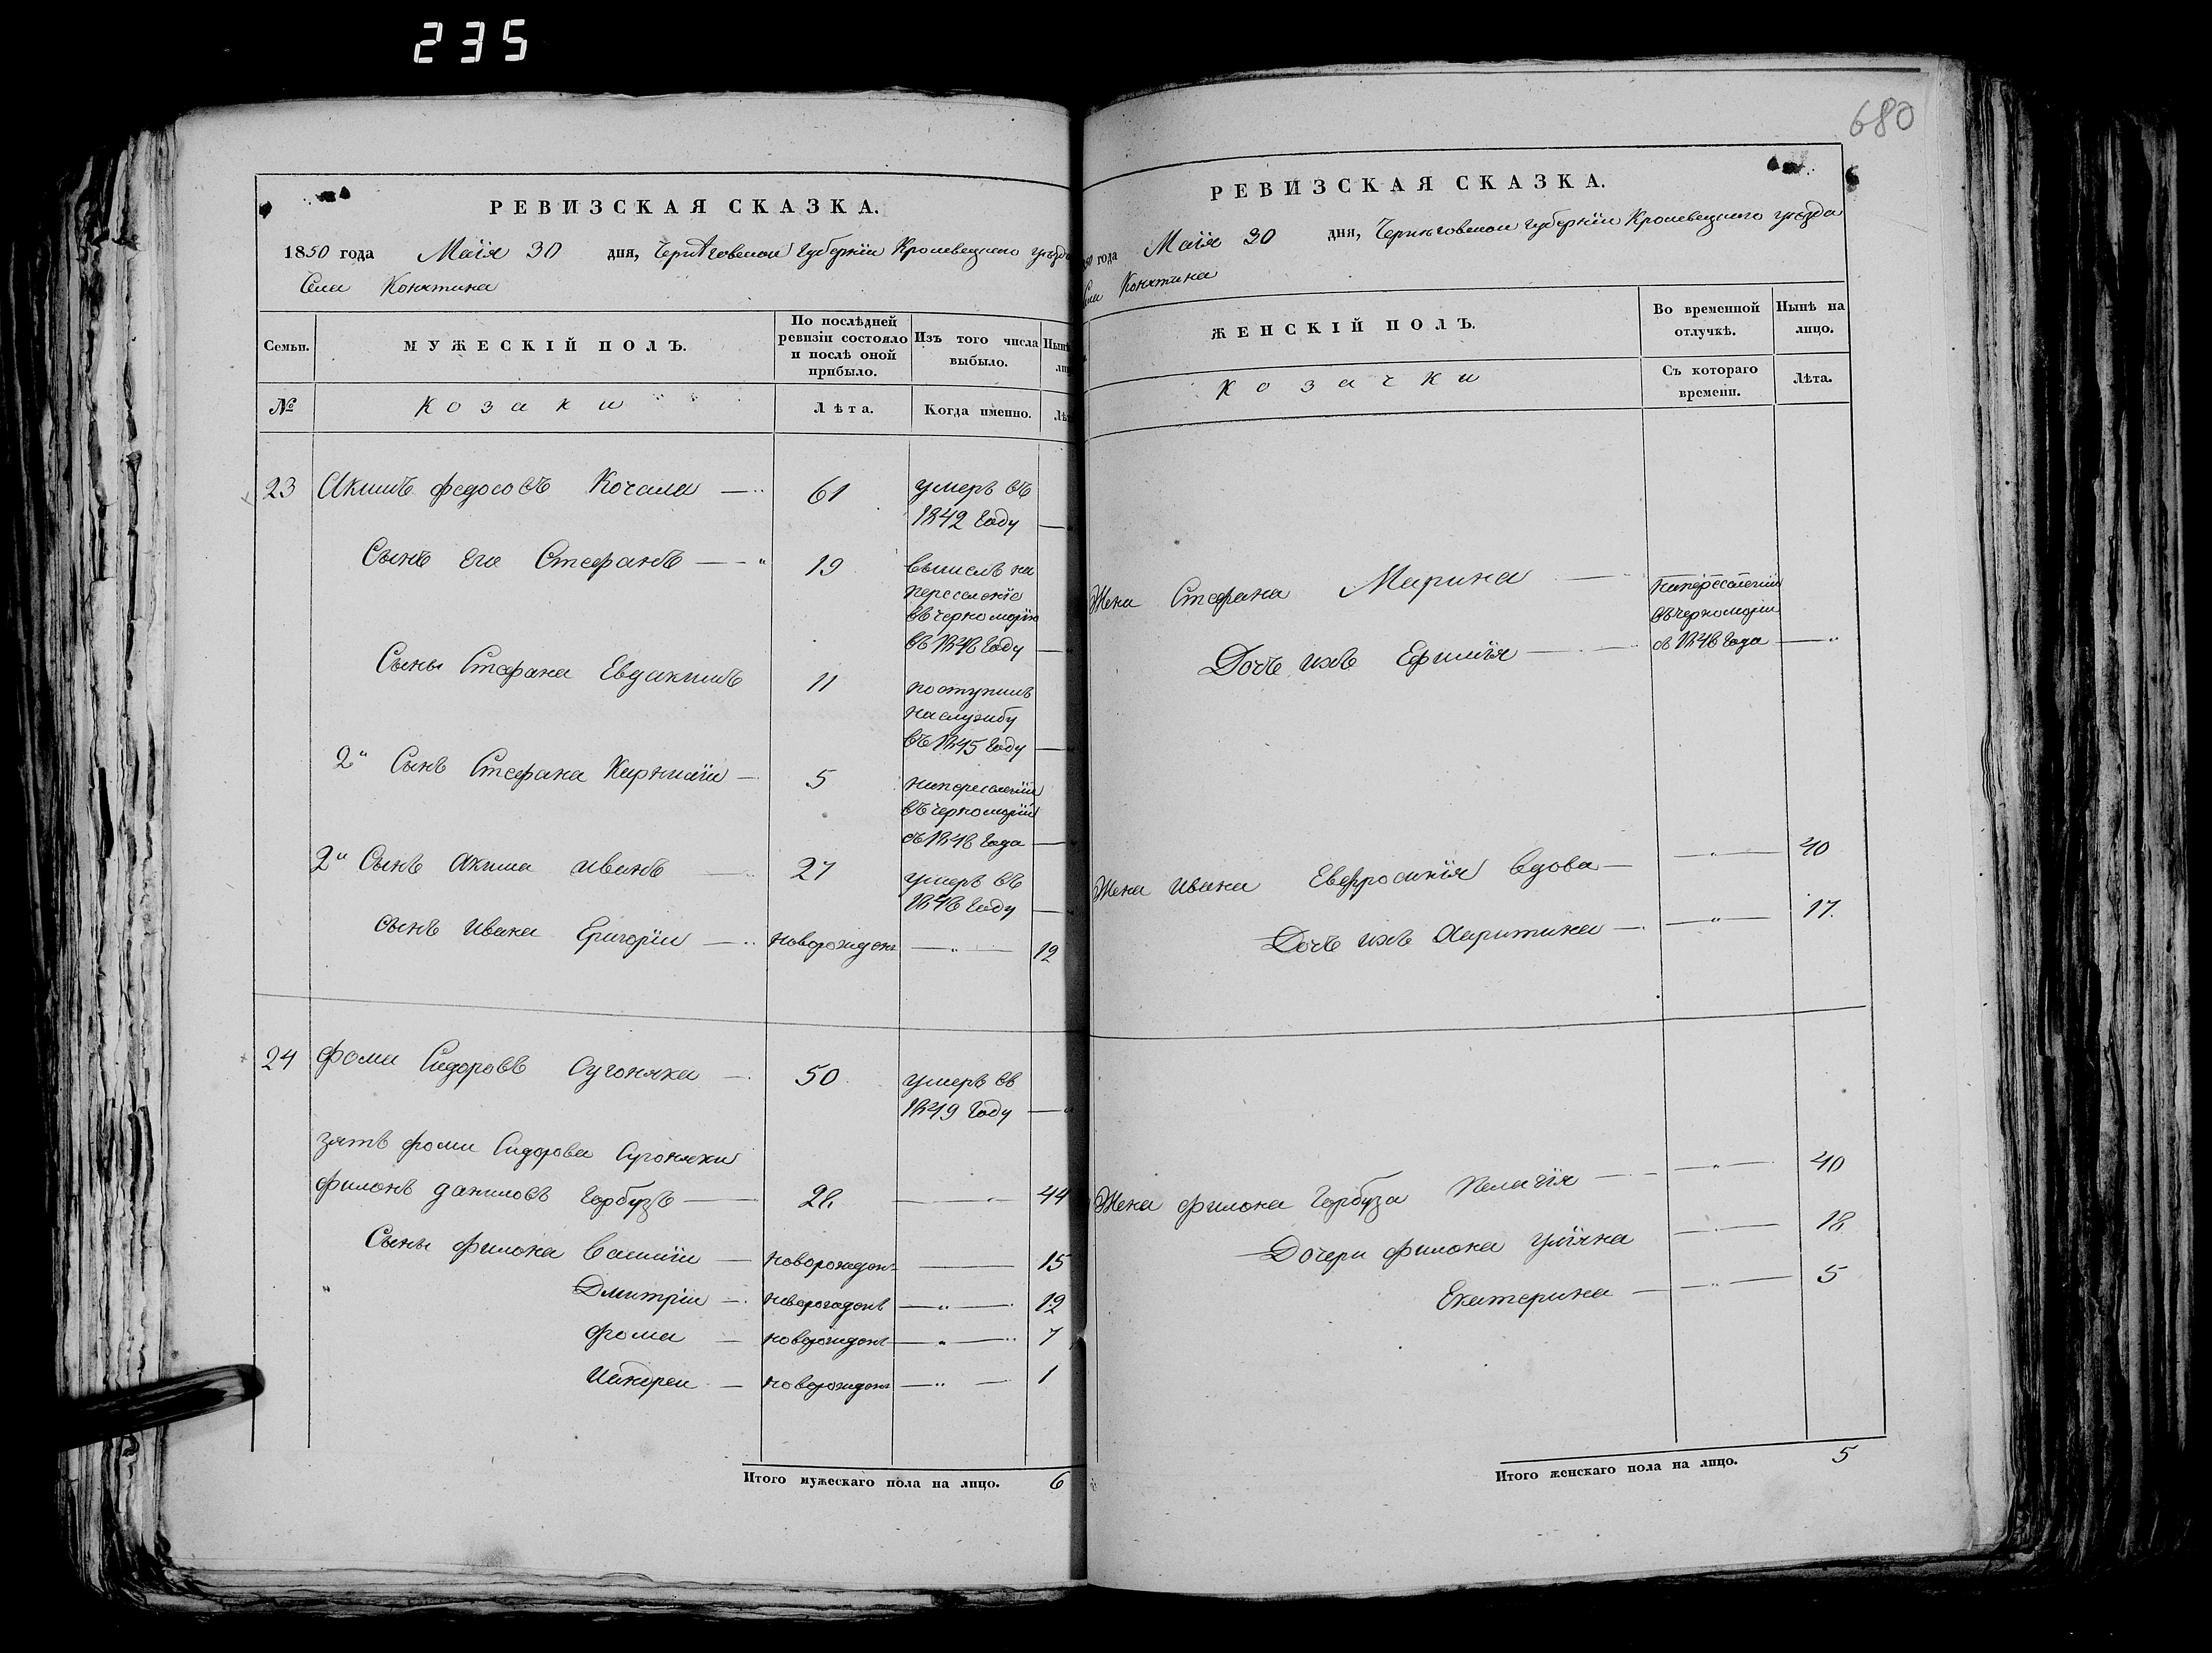 235
680
РЕВИЗСКАЯ СКАЗКА.
1850 года Маія 30 дня, Черниговской губернїи Кролевецкого уѣзда
Села Конятина
Семьи.
МУЖЕСКІЙ ПОЛЪ.
По послѣдней
ревизіи состояло
и послѣ оной
прибыло.
Изъ того числа
выбыло.
Нынѣ
№
Козаки
Лѣта.
Когда именно.
23 Акимъ федосовъ Кочала 61 умеръ въ
1842 году
Сынъ его Стефанъ 19 вышелъ на
переселенїе
въ черноморїю
въ 1848 году
Сыны Стефана Евдакимъ 11 поступилъ
на службу
въ 1845 году
2й Сынъ Стефана Карнилїи 5 на переселенїи
въ черноморїи
съ 1848 года
2й Сынъ Акима иванъ 27 умеръ въ
1848 году
сынъ ивана Григорїи новорожден 12
24 фома Сидоровъ Сугоняка 50 умеръ въ
1849 году
зять фомы Сидорова Сугоняки
филонъ даниловъ Гарбузъ 28 44
Сыны филона Василїи новорожден 15
Дмитрїи новорожденъ 12
фома новорожден 7
Андреи новорожден 1
Итого мужескаго пола на лицо. 6
РЕВИЗСКАЯ СКАЗКА.
года Маія 30 дня, Черниговской губернїи Кролевецкого уѣзда
Конятина
ЖЕНСКІЙ ПОЛЪ.
Во временной
отлучкѣ.
Нынѣ на
лицо.
Козачки
Съ котораго
времени.
Лѣта.
Жена Стефана Марина на переселенїи
въ черноморїи
съ 1848 года
Дочь ихъ Ефимїя
Жена ивана Евфросинїя вдова 40
Дочь ихъ Харитина 17.
Жена филона Гарбуза Пелагїя 40
Дочери филона улїяна 18
Екатерина 5
Итого женскаго пола на лицо. 5